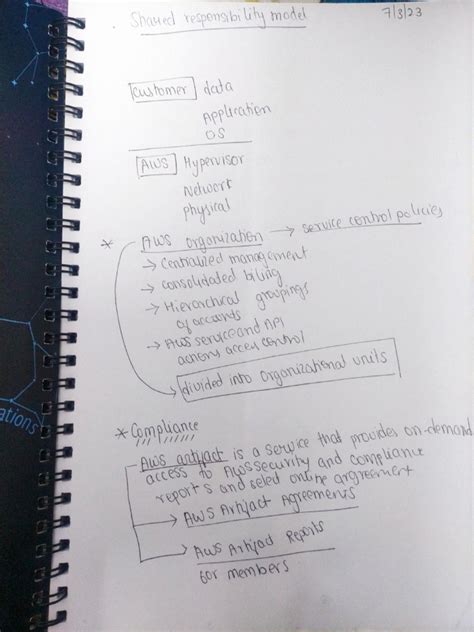 Shared responsibility model 7/3/23
customer data
Application
OS
AWS Hypervisor
Network
physical
* AWS organization → service control policies
→ centralized management
→ consolidated billing
→ Hierarchical groupings
of accounts
→ AWS service and API
actions access control
→ divided into organizational units
* Compliance
AWS artifact is a service that provides on-demand
access to AWS security and compliance
reports and select online argreement
→ AWS Artifact Agreements
→ AWS Artifact Reports
for members
ations